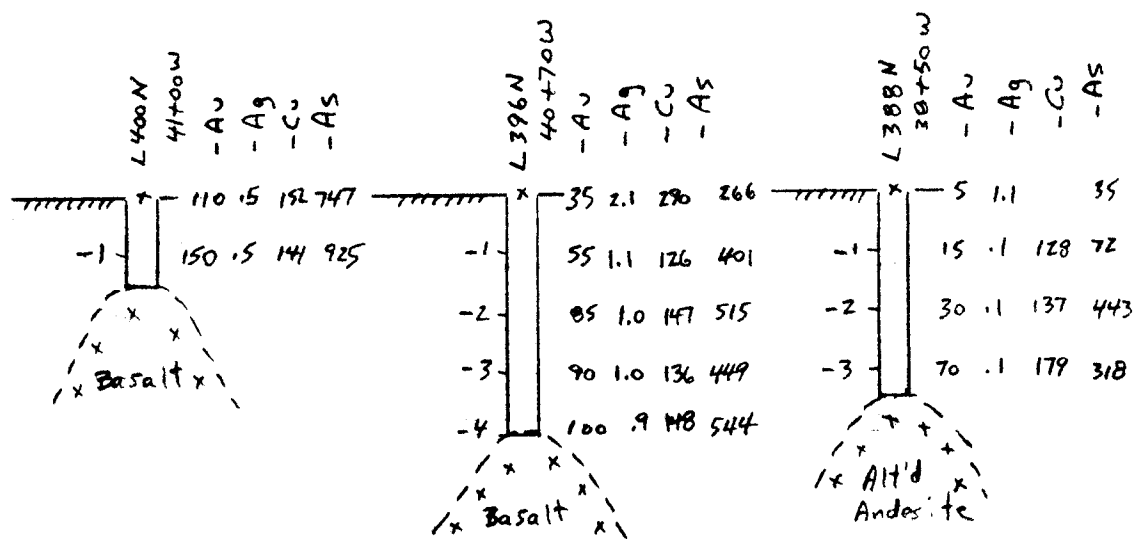 L400N
41+00W
-Au
-Ag
-Cu
-As
110 .5 152 747
-1 150 .5 141 925
Basalt
L396N
40+70W
-Au
-Ag
-Cu
-As
35 2.1 290 266
-1 55 1.1 126 401
-2 85 1.0 147 515
-3 90 1.0 136 449
-4 100 .9 148 544
Basalt
L388N
38+50W
-Au
-Ag
-Cu
-As
5 1.1 35
-1 15 .1 128 72
-2 30 .1 137 443
-3 70 .1 179 318
Alt'd
Andesite